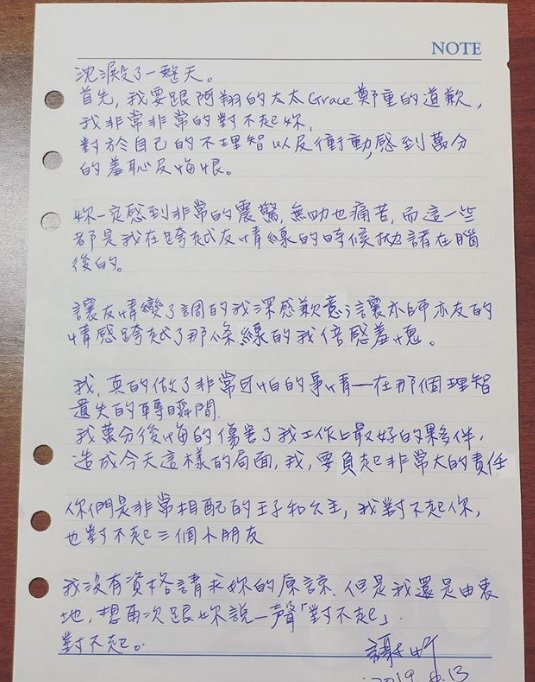 NOTE
沈澱了一整天。
首先,我要跟阿翔的太太Grace鄭重的道歉,
我非常非常的對不起妳,
對於自己的不理智以及衝動,感到萬分
的羞恥及悔恨。
妳一定感到非常的震驚,無助也痛苦,而這一些
都是我在跨越友情線的時候拋諸在腦
後的。
讓友情變了調的我深感歉意;讓亦師亦友的
情感跨越了那條線的我倍感羞愧。
我,真的做了非常可怕的事情—在那個理智
遺失的轉瞬間.
我萬分後悔的傷害了我工作上最好的夥伴,
造成今天這樣的局面,我,要負起非常大的責任
你們是非常相配的王子和公主,我對不起你,
也對不起三個小朋友
我沒有資格請求妳的原諒,但是我還是由衷
地,想再次跟妳說一聲「對不起」.
對不起。
2019